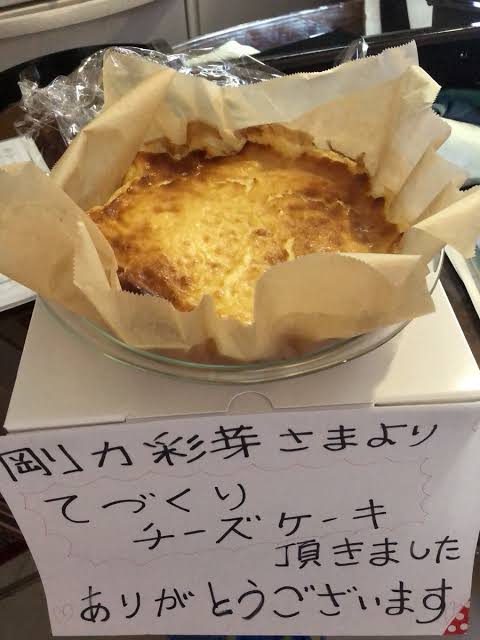 剛力彩芽さまより
てづくり
チーズケーキ
頂きました
ありがとうございます